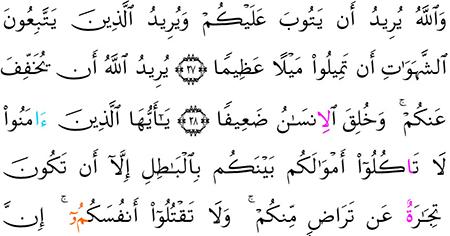 وَٱللَّهُ يُرِيدُ أَن يَتُوبَ عَلَيْكُمْ وَيُرِيدُ ٱلَّذِينَ يَتَّبِعُونَ
ٱلشَّهَوَٰتِ أَن تَمِيلُوا۟ مَيْلًا عَظِيمًا ﴿٢٧﴾ يُرِيدُ ٱللَّهُ أَن يُخَفِّفَ
عَنكُمْ ۚ وَخُلِقَ ٱلِانسَٰنُ ضَعِيفًا ﴿٢٨﴾ يَٰٓأَيُّهَا ٱلَّذِينَ ءَامَنُوا۟
لَا تَاكُلُوٓا۟ أَمْوَٰلَكُم بَيْنَكُم بِٱلْبَٰطِلِ إِلَّآ أَن تَكُونَ
تِجَٰرَةٌ عَن تَرَاضٍ مِّنكُمْ ۚ وَلَا تَقْتُلُوٓا۟ أَنفُسَكُمُۥٓ ۚ إِنَّ